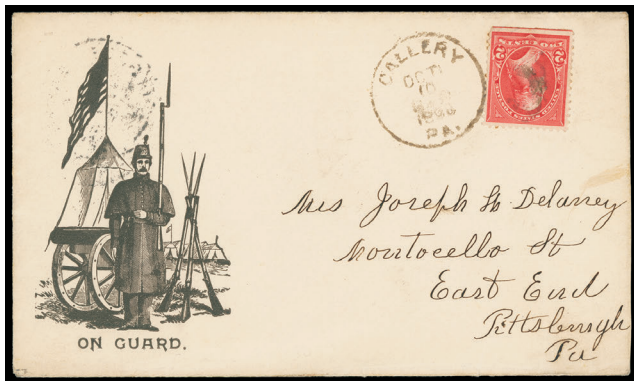 CALLERY
OCT
10
PA.
ON GUARD.
Mrs Joseph H. Delaney
Montocello St
East End
Pittsburgh
Pa